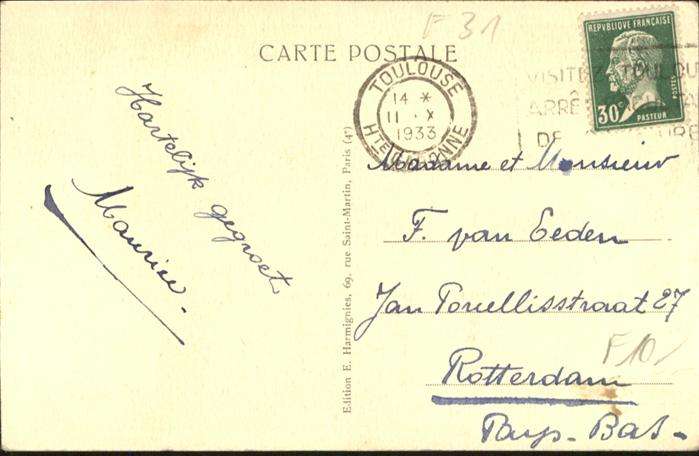 F 31
CARTE POSTALE
REPUBLIQUE FRANÇAISE
POSTES
30c
PASTEUR
TOULOUSE
14 *
11 · X
1933
HTE GARONNE
VISITEZ TOULOU
ARRÊ
DE
Hartelijk gegroet
Maurice.-
Edition E. Harmignies, 69, rue Saint-Martin, Paris (4e)
Madame et Monsieur
F. van Eeden
Jan Porcellisstraat 27
F10/-
Rotterdam
Pays-Bas-